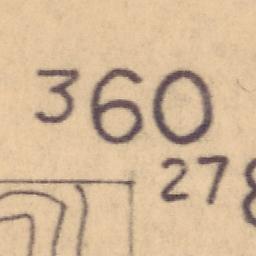 360
278